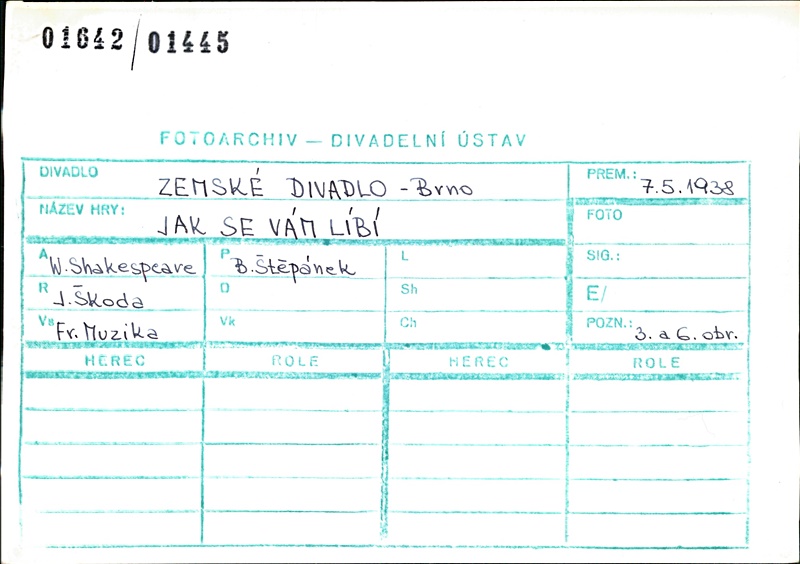 01642/01445
FOTOARCHIV — DIVADELNÍ ÚSTAV
DIVADLO ZEMSKÉ DIVADLO - Brno PREM.: 7.5.1938
NÁZEV HRY: JAK SE VÁM LÍBÍ FOTO
A W. Shakespeare P B. Štěpánek L SIG.:
R J. Škoda O Sh E/
Vs Fr. Muzika Vk Ch POZN.: 3. a 6. obr.
HEREC ROLE HEREC ROLE